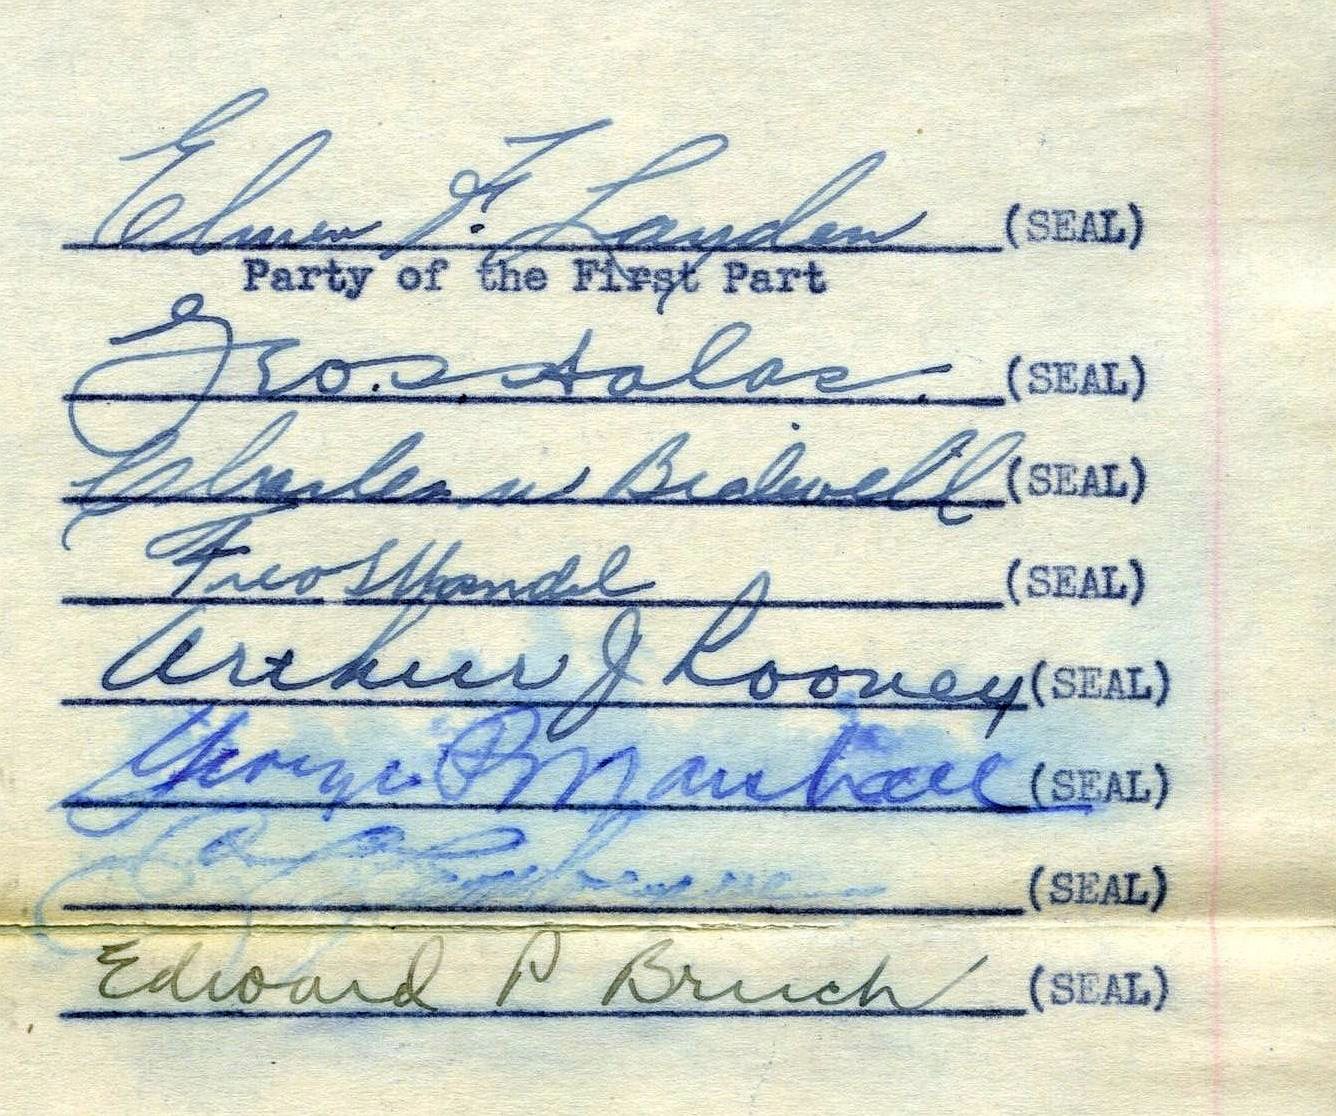 Elmer F. Layden (SEAL)
Party of the First Part
Geo. S. Halas. (SEAL)
Charles W Bidwill (SEAL)
Fred L Mandel (SEAL)
Arthur J Rooney (SEAL)
George P Marshall (SEAL)
(SEAL)
Edward P Bruch (SEAL)